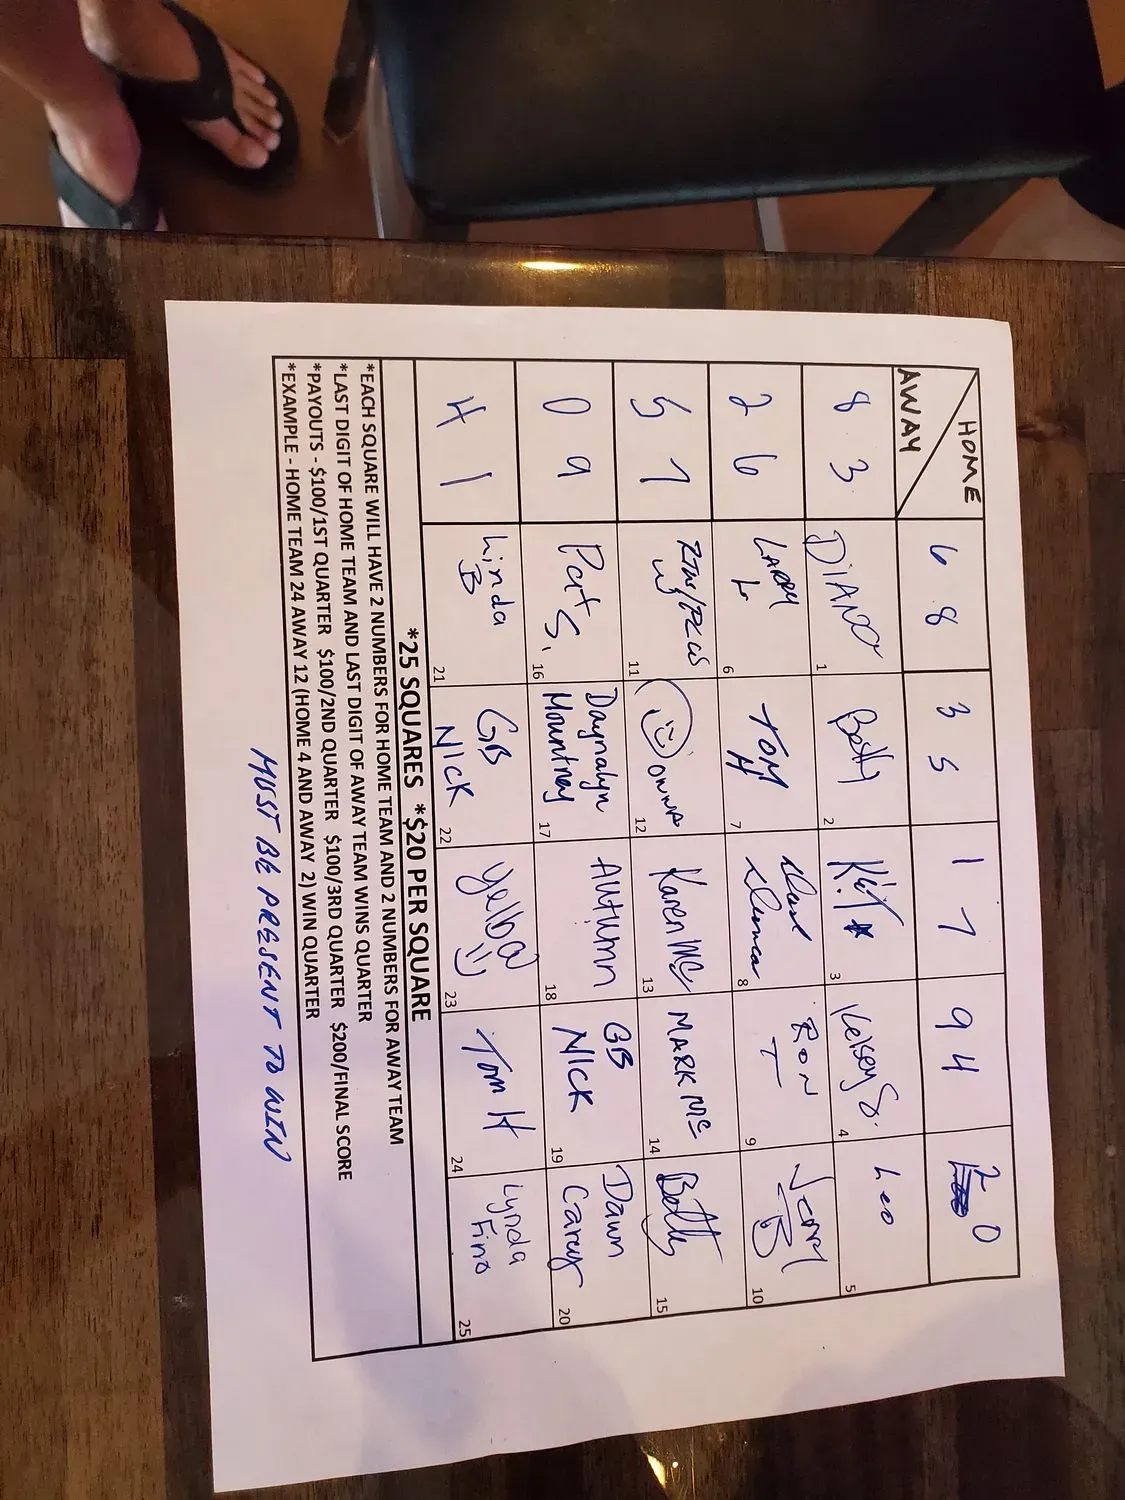 HOME
AWAY
6 8
3 5
1 7
9 4
2 0
8 3
DIANO
1
Betty
2
Kit
3
Kelsey S.
4
Leo
5
2 6
LARRY
L
6
TOM
H
7
8
RON
T
9
JERRY
B
10
5 7
W
11
DONNA
12
Karen Mc
13
MARK Mc
14
Betty
15
0 9
Pat S.
16
Daynalyn
Mountney
17
AUTUMN
18
GB
NICK
19
Dawn
Carey
20
4 1
Linda
B
21
GB
NICK
22
Yelba
23
Tom H
24
Lynda
Fino
25
*25 SQUARES *$20 PER SQUARE
*EACH SQUARE WILL HAVE 2 NUMBERS FOR HOME TEAM AND 2 NUMBERS FOR AWAY TEAM
*LAST DIGIT OF HOME TEAM AND LAST DIGIT OF AWAY TEAM WINS QUARTER
*PAYOUTS - $100/1ST QUARTER $100/2ND QUARTER $100/3RD QUARTER $200/FINAL SCORE
*EXAMPLE - HOME TEAM 24 AWAY 12 (HOME 4 AND AWAY 2) WIN QUARTER
MUST BE PRESENT TO WIN